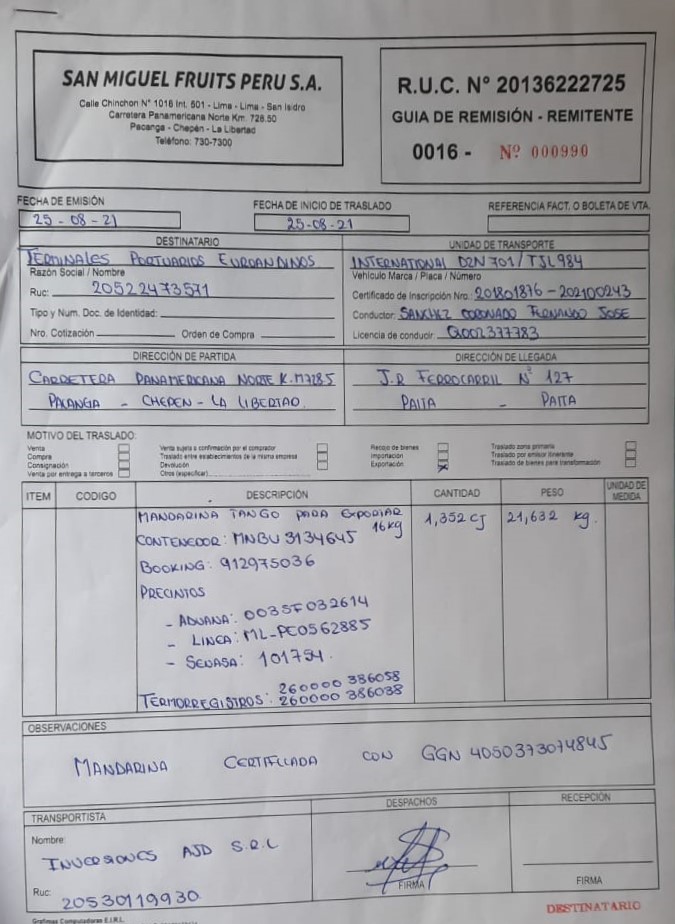 SAN MIGUEL FRUITS PERU S.A.
Calle Chinchon N° 1016 Int. 501 - Lima - Lima - San Isidro
Carretera Panamericana Norte Km. 728.50
Pacanga - Chepén - La Libertad
Teléfono: 730-7300
R.U.C. N° 20136222725
GUIA DE REMISIÓN - REMITENTE
0016 - Nº 000990
FECHA DE EMISIÓN
25 - 08 - 21
FECHA DE INICIO DE TRASLADO
25-08-21
REFERENCIA FACT. O BOLETA DE VTA.
DESTINATARIO
TERMINALES PORTUARIOS EUROANDINOS
Razón Social / Nombre
Ruc: 20522473571
Tipo y Num. Doc. de Identidad:
Nro. Cotización: Orden de Compra
UNIDAD DE TRANSPORTE
INTERNATIONAL D2N 701 / TJL984
Vehículo Marca / Placa / Número
Certificado de Inscripción Nro.: 201801876 - 202100243
Conductor: SANCHEZ CORONADO FERNANDO JOSE
Licencia de conducir: Q002377783
DIRECCIÓN DE PARTIDA
CARRETERA PANAMERICANA NORTE K.M728.5
PACANGA - CHEPEN - LA LIBERTAD.
DIRECCIÓN DE LLEGADA
J.R FERROCARRIL N° 127
PAITA - PAITA
MOTIVO DEL TRASLADO:
Venta
Compra
Consignación
Venta por entrega a terceros
Venta sujeta a confirmación por el comprador
Traslado entre establecimientos de la misma empresa
Devolución
Otros (especificar)
Recojo de bienes
Importación
Exportación
Traslado zona primaria
Traslado por emisor itinerante
Traslado de bienes para transformación
ITEM CODIGO DESCRIPCIÓN CANTIDAD PESO UNIDAD DE MEDIDA
MANDARINA TANGO PARA EXPORTAR 1,352 CJ 21,632 kg.
16kg
CONTENEDOR: MNBU 3134645
BOOKING: 912975036
PRECINTOS
- ADUANA: 0035F032614
- LINEA: ML-PE0562885
- SENASA: 101754.
TERMORREGISTROS: 260000 386058
260000 386038
OBSERVACIONES
MANDARINA CERTIFICADA CON GGN 4050373074845
TRANSPORTISTA
Nombre:
INVERSIONES AJD S.R.L
Ruc: 20530119930
DESPACHOS
FIRMA
RECEPCIÓN
FIRMA
Grafimas Computadoras E.I.R.L.
DESTINATARIO